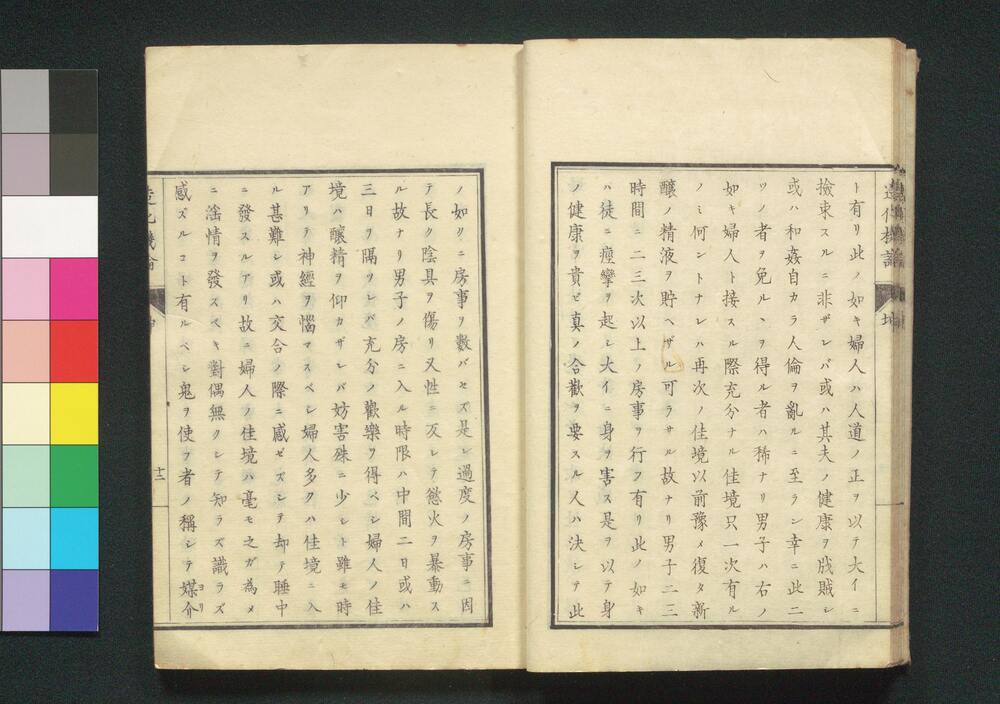 ト有リ此ノ如キ婦人ハ人道ノ正ヲ以テ大イニ
撿束スルニ非ザレバ或ハ其夫ノ健康ヲ戕賊シ
或ハ和姦自カラ人倫ヲ亂ルニ至ラン幸ニ此二
ツノ者ヲ免ルヽヲ得ル者ハ稀ナリ男子ハ右ノ
如キ婦人ト接スル際充分ナル佳境只一次有ル
ノミ何ントナレハ再次ノ佳境以前豫メ復タ新
釀ノ精液ヲ貯ヘザル可ラサル故ナリ男子二三
時間ニ二三次以上ノ房事ヲ行フ有リ此ノ如キ
ハ徒ニ痙攣ヲ起シ大イニ身ヲ害ス是ヲ以テ身
ノ健康ヲ貴ビ真ノ合歡ヲ要スル人ハ決シテ此
坤
ノ如リニ房事ヲ數バセズ是レ過度ノ房事ニ因
テ長ク陰具ヲ傷リ又性ニ反シテ慾火ヲ暴動ス
ル故ナリ男子ノ房ニ入ル時限ハ中間二日或ハ
三日ヲ隔ツレバ充分ノ歡樂ヲ得ベシ婦人ノ佳
境ハ釀精ヲ仰カザレバ妨害殊ニ少シト雖モ時
アリテ神經ヲ惱マスベシ婦人多クハ佳境ニ入
ル甚難シ或ハ交合ノ際ニ感ゼズシテ却テ睡中
ニ發スルアリ故ニ婦人ノ佳境ハ毫モ之ガ為メ
ニ淫情ヲ發スベキ對偶無クシテ知ラズ識ラズ
感ズルコト有ルベシ鬼ヲ使フ者ノ稱シテ媒介ヨリ
十二